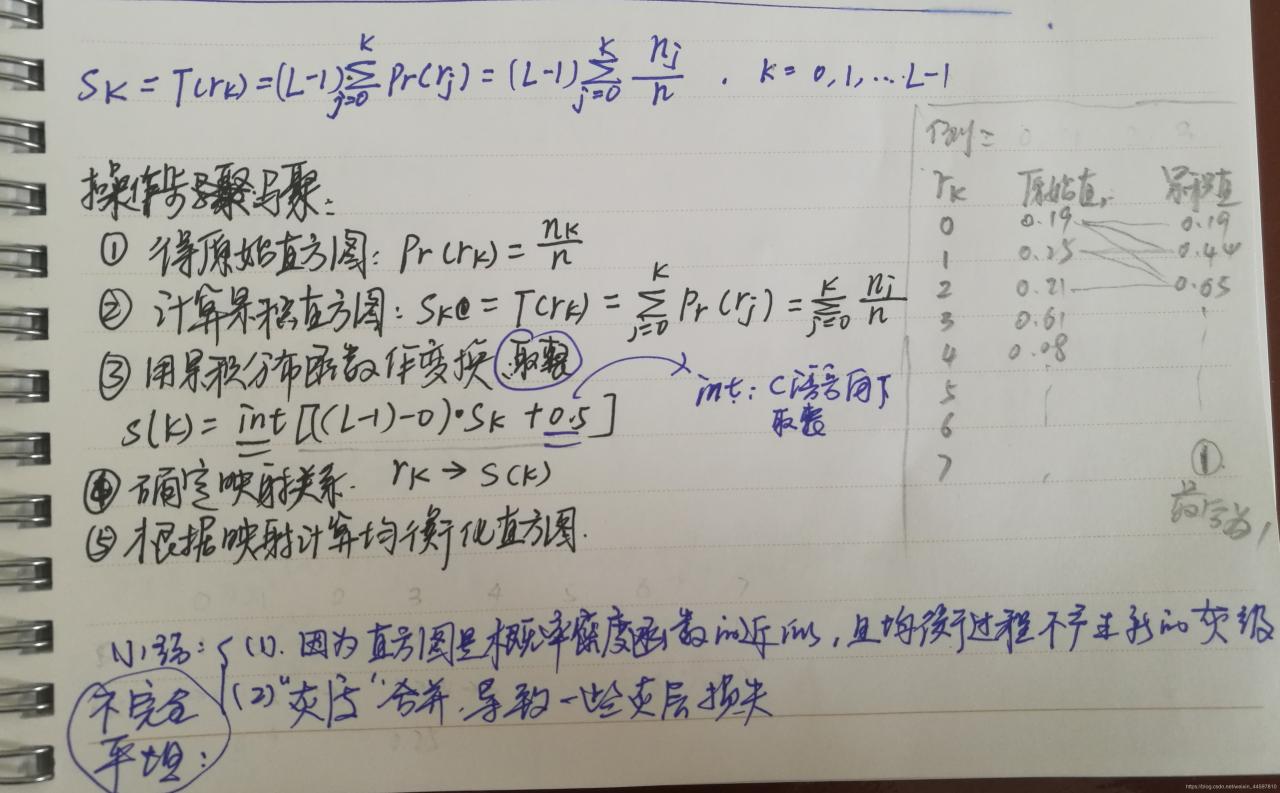 S_K = T(r_K) = (L-1) \sum_{j=0}^{K} Pr(r_j) = (L-1) \sum_{j=0}^{K} \frac{n_j}{n} . K = 0,1,...L-1
操作步骤:
① 得原始直方图: Pr(r_K) = \frac{n_K}{n}
② 计算累积直方图: S_K = T(r_K) = \sum_{j=0}^{K} Pr(r_j) = \sum_{j=0}^{K} \frac{n_j}{n}
③ 用累积分布函数作变换 取整
int: C语言向下
取整
S(K) = int [((L-1)-0)·S_K + 0.5]
④ 确定映射关系. r_K → S(K)
⑤ 根据映射计算均衡化直方图.
r_K 原始值 累积值
0 0.19 0.19
1 0.25 0.44
2 0.21 0.65
3 0.61
4 0.08
5
6
7 ①
最后为1
(1). 因为直方图是概率密度函数的近似, 且均衡过程不产生新的灰级
不完全
平坦:
(2) "灰度" 合并. 导致一些灰层损失
https://blog.csdn.net/weixin_44597810